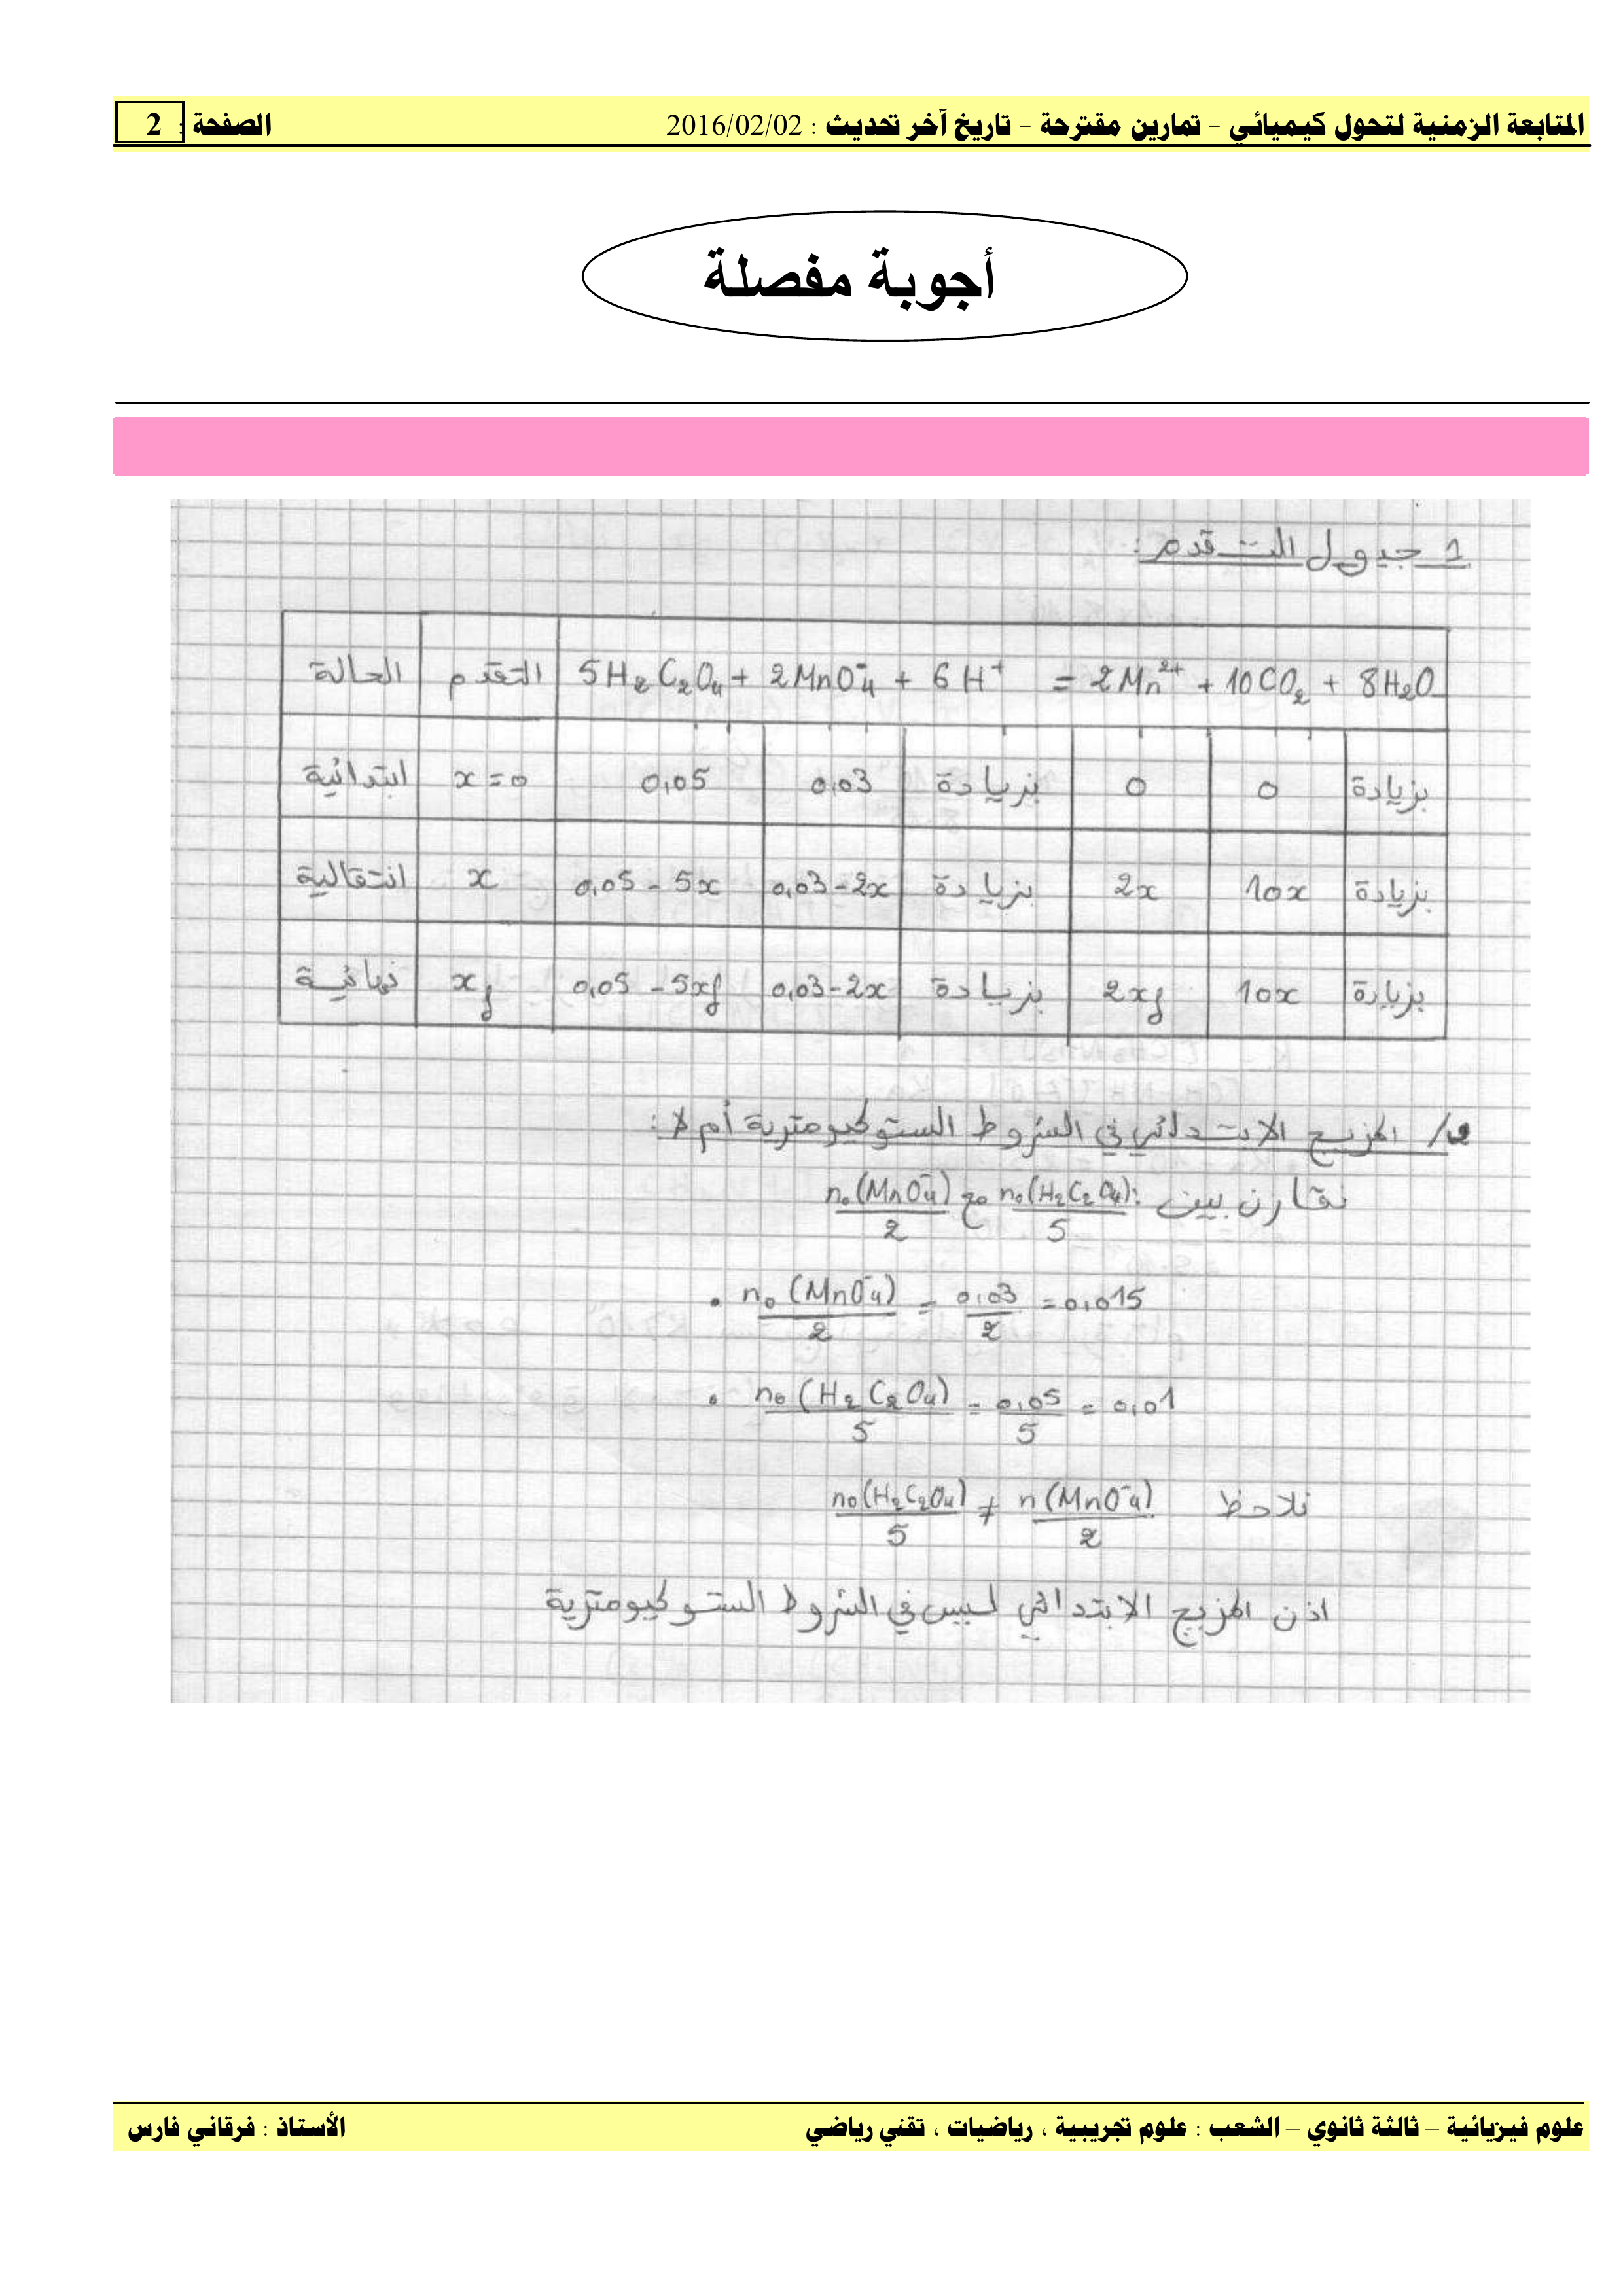 المتابعة الزمنية لتحول كيميائي – تمارين مقترحة – تاريخ آخر تحديث : 2016/02/02 الصفحة : 2
أجوبة مفصلة
1 جدول التقدم :
الحالة | التقدم | 5H₂C₂O₄ + 2MnO₄⁻ + 6H⁺ = 2Mn²⁺ + 10CO₂ + 8H₂O
ابتدائية | x = 0 | 0,05 | 0,03 | بزيادة | 0 | 0 | بزيادة
انتقالية | x | 0,05 - 5x | 0,03 - 2x | بزيادة | 2x | 10x | بزيادة
نهائية | xf | 0,05 - 5xf | 0,03 - 2x | بزيادة | 2xf | 10x | بزيادة
2/ المزيج الابتدائي في الشروط الستوكيومترية أم لا :
نقارن بين : n₀(H₂C₂O₄)/5 مع n₀(MnO₄⁻)/2
• n₀(MnO₄⁻)/2 = 0,03/2 = 0,015
• n₀(H₂C₂O₄)/5 = 0,05/5 = 0,01
نلاحظ n₀(H₂C₂O₄)/5 ≠ n(MnO₄⁻)/2
اذن المزيج الابتدائي ليس في الشروط الستوكيومترية
علوم فيزيائية – ثالثة ثانوي – الشعب : علوم تجريبية ، رياضيات ، تقني رياضي الأستاذ : فرقاني فارس